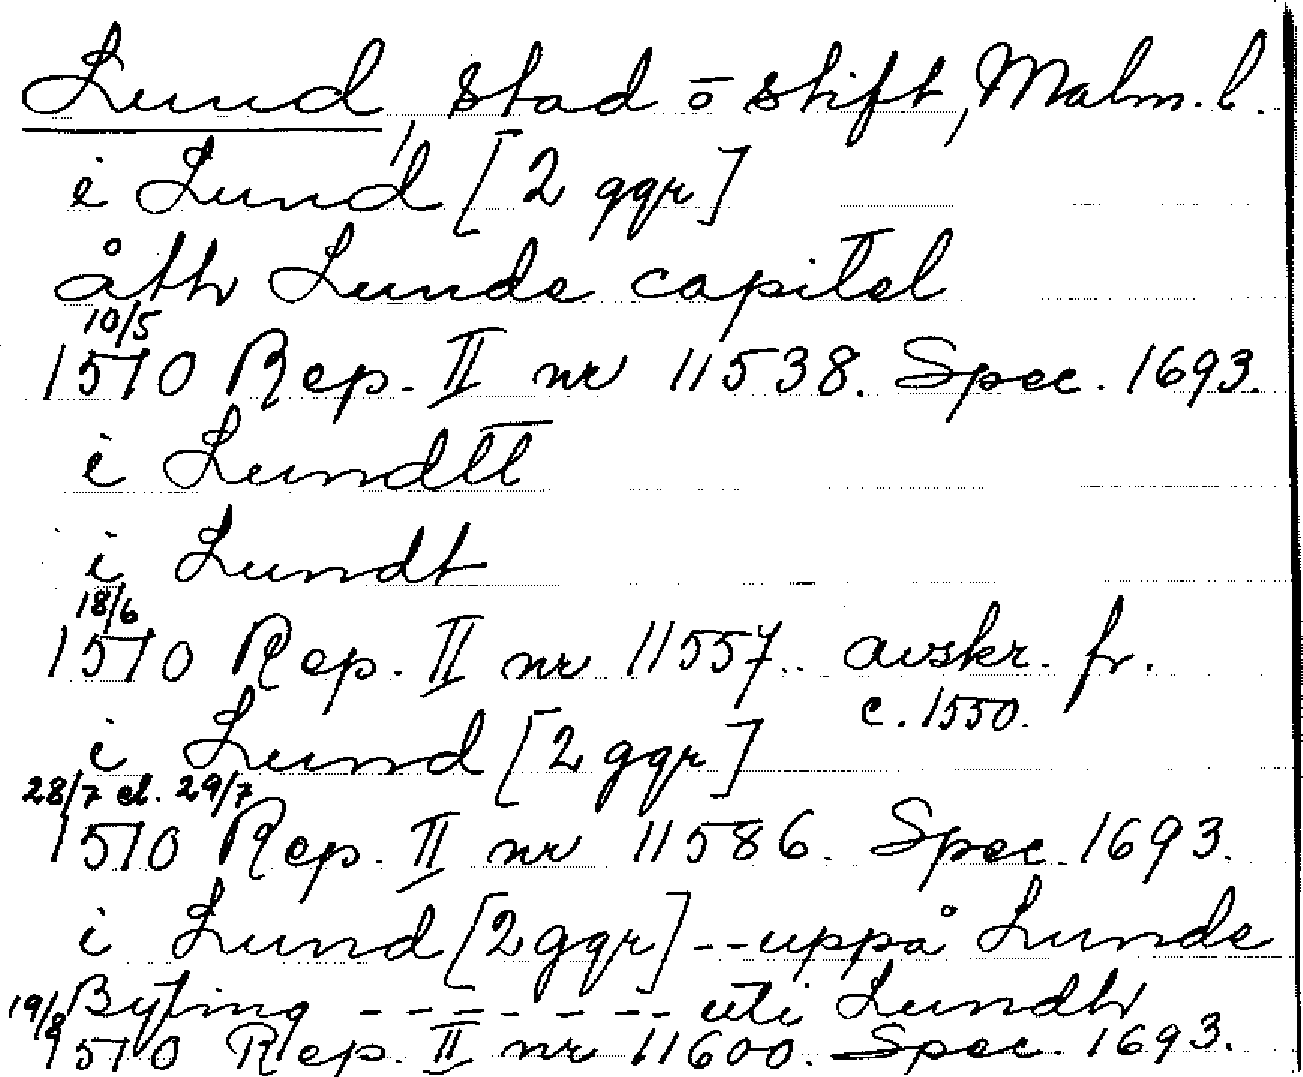 Lund, stad o stift, Malm. l.
i Lund [2 ggr]
åth Lunde capitel
10/5
1570 Rep. II nr 11538. Spec. 1693.
i Lundtt
i Lundt
18/6
1570 Rep. II nr 11557. avskr. fr.
c. 1550.
i Lund [2 ggr]
28/7 el. 29/7
1570 Rep. II nr 11586. Spec. 1693.
i Lund [2 ggr] -- uppå Lunde
Byting - - - - - - - uti Lundh
19/8
1570 Rep. II nr 11600. Spec. 1693.